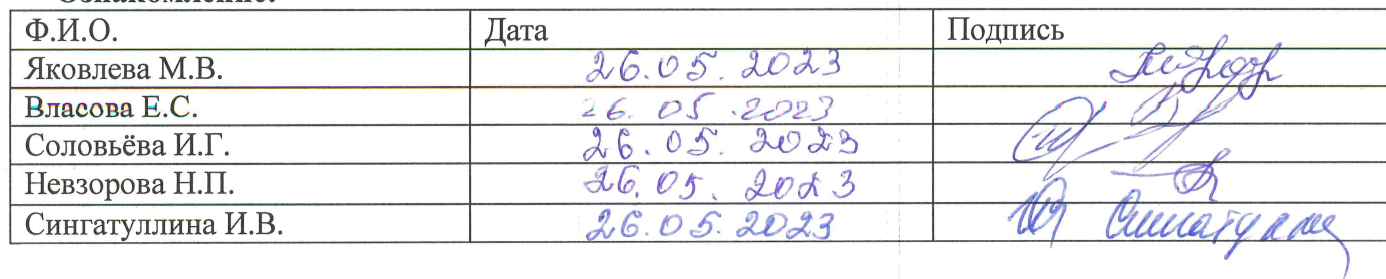 Ознакомление:
Ф.И.О. Дата Подпись
Яковлева М.В. 26.05.2023
Власова Е.С. 26.05.2023
Соловьёва И.Г. 26.05.2023
Невзорова Н.П. 26.05.2023
Сингатуллина И.В. 26.05.2023